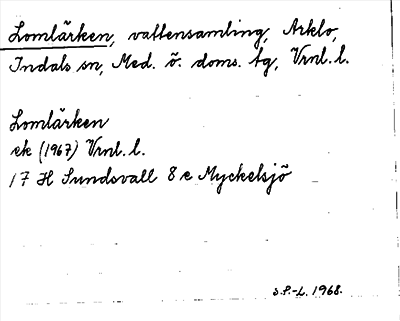 Lomlärken, vattensamling, Arklo,
Indals sn, Med. ö. doms. tg, Vrnl. l.
Lomlärken
ek (1967) Vrnl. l.
17 H Sundsvall 8 e Myckelsjö
S.P.-L. 1968.